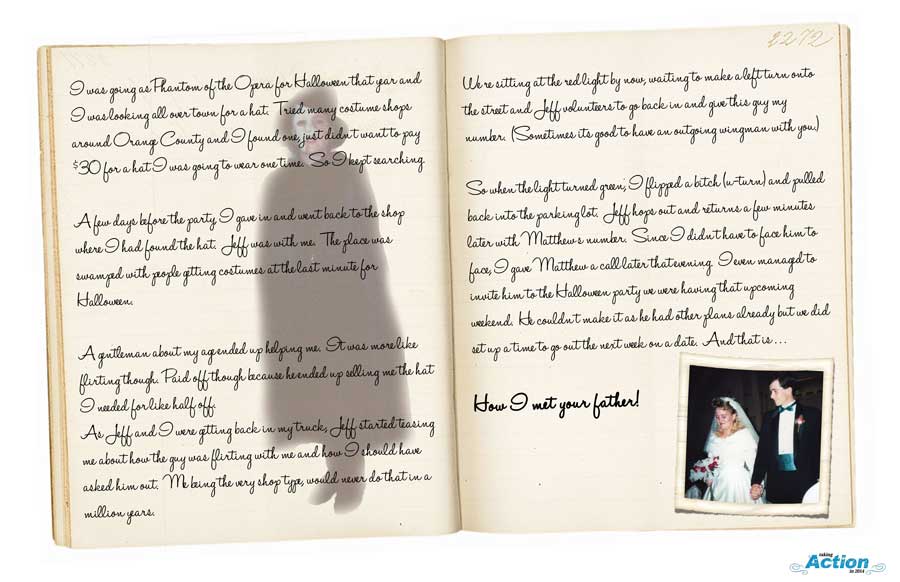 2272
I was going as Phantom of the Opera for Halloween that year and
I was looking all over town for a hat. Tried many costume shops
around Orange County and I found one, just didn't want to pay
$30 for a hat I was going to wear one time. So I kept searching.
A few days before the party, I gave in and went back to the shop
where I had found the hat. Jeff was with me. The place was
swamped with people getting costumes at the last minute for
Halloween.
A gentleman about my age ended up helping me. It was more like
flirting though. Paid off though because he ended up selling me the hat
I needed for like half off.
As Jeff and I were getting back in my truck, Jeff started teasing
me about how the guy was flirting with me and how I should have
asked him out. Me being the very shop type, would never do that in a
million years.
We're sitting at the red light by now, waiting to make a left turn onto
the street and Jeff volunteers to go back in and give this guy my
number. (Sometimes its good to have an outgoing wingman with you.)
So when the light turned green, I flipped a bitch (u-turn) and pulled
back into the parking lot. Jeff hops out and returns a few minutes
later with Matthew's number. Since I didn't have to face him to
face, I gave Matthew a call later that evening. I even managed to
invite him to the Halloween party we were having that upcoming
weekend. He couldn't make it as he had other plans already but we did
set up a time to go out the next week on a date. And that is ...
How I met your father!
taking
Action
in 2014